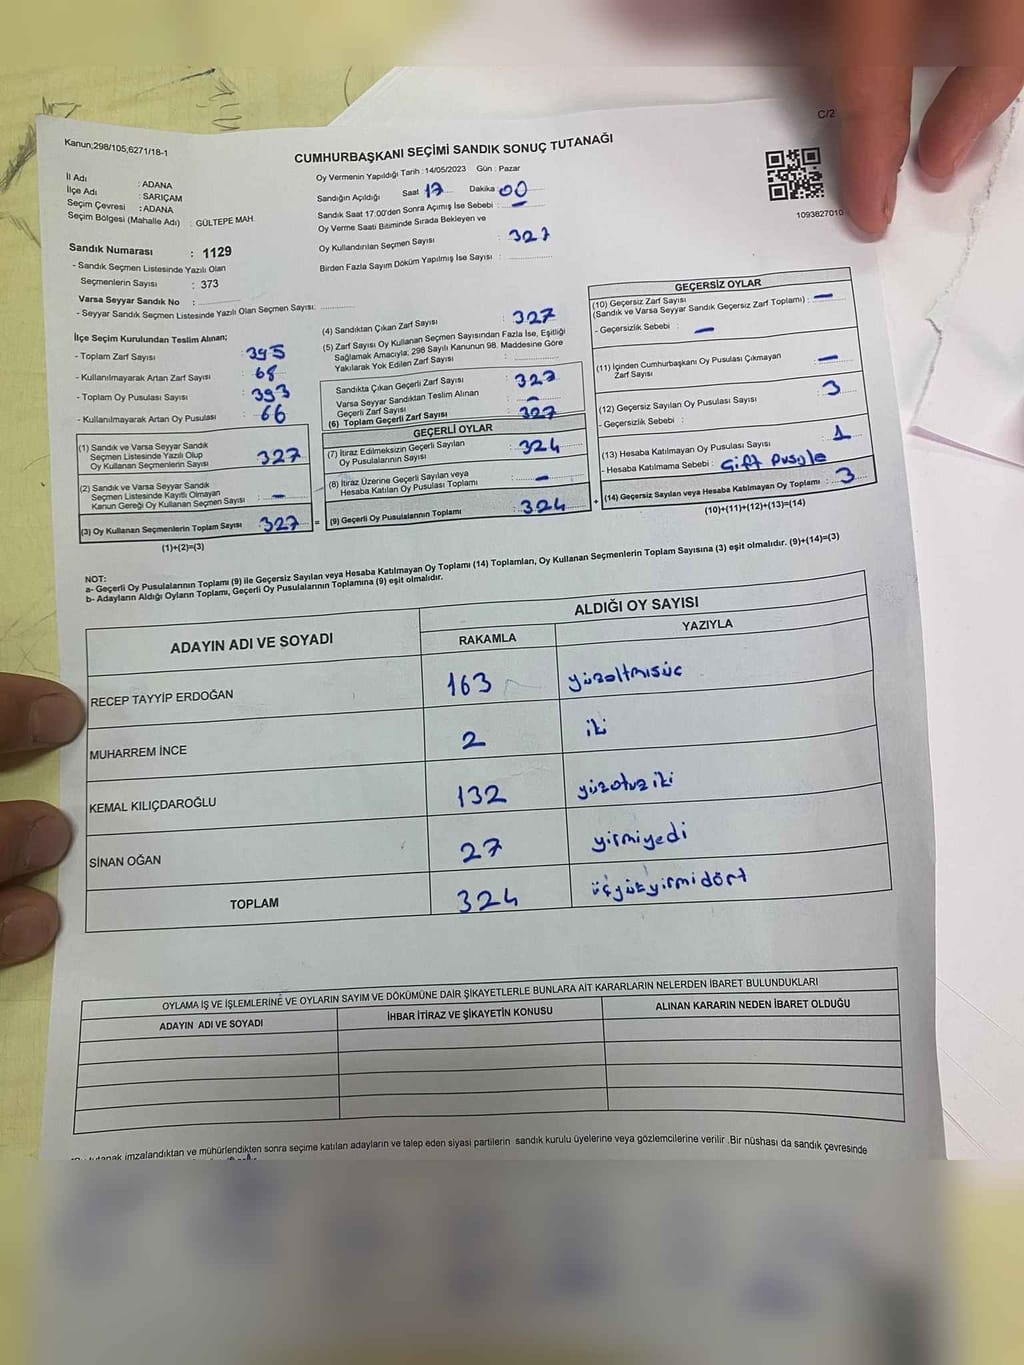 C/2
Kanun;298/105,6271/18-1
CUMHURBAŞKANI SEÇİMİ SANDIK SONUÇ TUTANAĞI
İl Adı : ADANA
İlçe Adı : SARIÇAM
Seçim Çevresi : ADANA
Seçim Bölgesi (Mahalle Adı) : GÜLTEPE MAH.
Sandık Numarası : 1129
- Sandık Seçmen Listesinde Yazılı Olan
Seçmenlerin Sayısı : 373
Varsa Seyyar Sandık No :
- Seyyar Sandık Seçmen Listesinde Yazılı Olan Seçmen Sayısı:
Oy Vermenin Yapıldığı Tarih : 14/05/2023 Gün : Pazar
Sandığın Açıldığı Saat 17 Dakika 00
Sandık Saat 17:00'den Sonra Açımış İse Sebebi : —
Oy Verme Saati Bitiminde Sırada Bekleyen ve
Oy Kullandırılan Seçmen Sayısı : 327
Birden Fazla Sayım Döküm Yapılmış İse Sayısı :
1093827010
İlçe Seçim Kurulundan Teslim Alınan;
- Toplam Zarf Sayısı : 395
- Kullanılmayarak Artan Zarf Sayısı : 68
- Toplam Oy Pusulası Sayısı : 393
- Kullanılmayarak Artan Oy Pusulası : 66
(1) Sandık ve Varsa Seyyar Sandık
Seçmen Listesinde Yazılı Olup
Oy Kullanan Seçmenlerin Sayısı : 327
(2) Sandık ve Varsa Seyyar Sandık
Seçmen Listesinde Kayıtlı Olmayan
Kanun Gereği Oy Kullanan Seçmen Sayısı : —
(3) Oy Kullanan Seçmenlerin Toplam Sayısı : 327
(1)+(2)=(3)
(4) Sandıktan Çıkan Zarf Sayısı : 327
(5) Zarf Sayısı Oy Kullanan Seçmen Sayısından Fazla İse, Eşitliği
Sağlamak Amacıyla; 298 Sayılı Kanunun 98. Maddesine Göre
Yakılarak Yok Edilen Zarf Sayısı :
Sandıkta Çıkan Geçerli Zarf Sayısı : 327
Varsa Seyyar Sandıktan Teslim Alınan
Geçerli Zarf Sayısı : —
(6) Toplam Geçerli Zarf Sayısı : 327
GEÇERLİ OYLAR
(7) İtiraz Edilmeksizin Geçerli Sayılan
Oy Pusulalarının Sayısı : 324
(8) İtiraz Üzerine Geçerli Sayılan veya
Hesaba Katılan Oy Pusulası Toplamı : —
= (9) Geçerli Oy Pusulalarının Toplamı : 324
GEÇERSİZ OYLAR
(10) Geçersiz Zarf Sayısı
(Sandık ve Varsa Seyyar Sandık Geçersiz Zarf Toplamı) : —
- Geçersizlik Sebebi : —
(11) İçinden Cumhurbaşkanı Oy Pusulası Çıkmayan
Zarf Sayısı : —
(12) Geçersiz Sayılan Oy Pusulası Sayısı : 3
- Geçersizlik Sebebi :
(13) Hesaba Katılmayan Oy Pusulası Sayısı : 1
- Hesaba Katılmama Sebebi :
+ (14) Geçersiz Sayılan veya Hesaba Katılmayan Oy Toplamı : 3
(10)+(11)+(12)+(13)=(14)
NOT:
a- Geçerli Oy Pusulalarının Toplamı (9) ile Geçersiz Sayılan veya Hesaba Katılmayan Oy Toplamı (14) Toplamları, Oy Kullanan Seçmenlerin Toplam Sayısına (3) eşit olmalıdır. (9)+(14)=(3)
b- Adayların Aldığı Oyların Toplamı, Geçerli Oy Pusulalarının Toplamına (9) eşit olmalıdır.
ADAYIN ADI VE SOYADI
ALDIĞI OY SAYISI
RAKAMLA YAZIYLA
RECEP TAYYİP ERDOĞAN 163 yüzaltmışüç
MUHARREM İNCE 2 iki
KEMAL KILIÇDAROĞLU 132 yüzotuziki
SİNAN OĞAN 27 yirmiyedi
TOPLAM 324 üçyüzyirmidört
OYLAMA İŞ VE İŞLEMLERİNE VE OYLARIN SAYIM VE DÖKÜMÜNE DAİR ŞİKAYETLERLE BUNLARA AİT KARARLARIN NELERDEN İBARET BULUNDUKLARI
ADAYIN ADI VE SOYADI İHBAR İTİRAZ VE ŞİKAYETİN KONUSU ALINAN KARARIN NEDEN İBARET OLDUĞU
imzalandıktan ve mühürlendikten sonra seçime katılan adayların ve talep eden siyasi partilerin sandık kurulu üyelerine veya gözlemcilerine verilir .Bir nüshası da sandık çevresinde